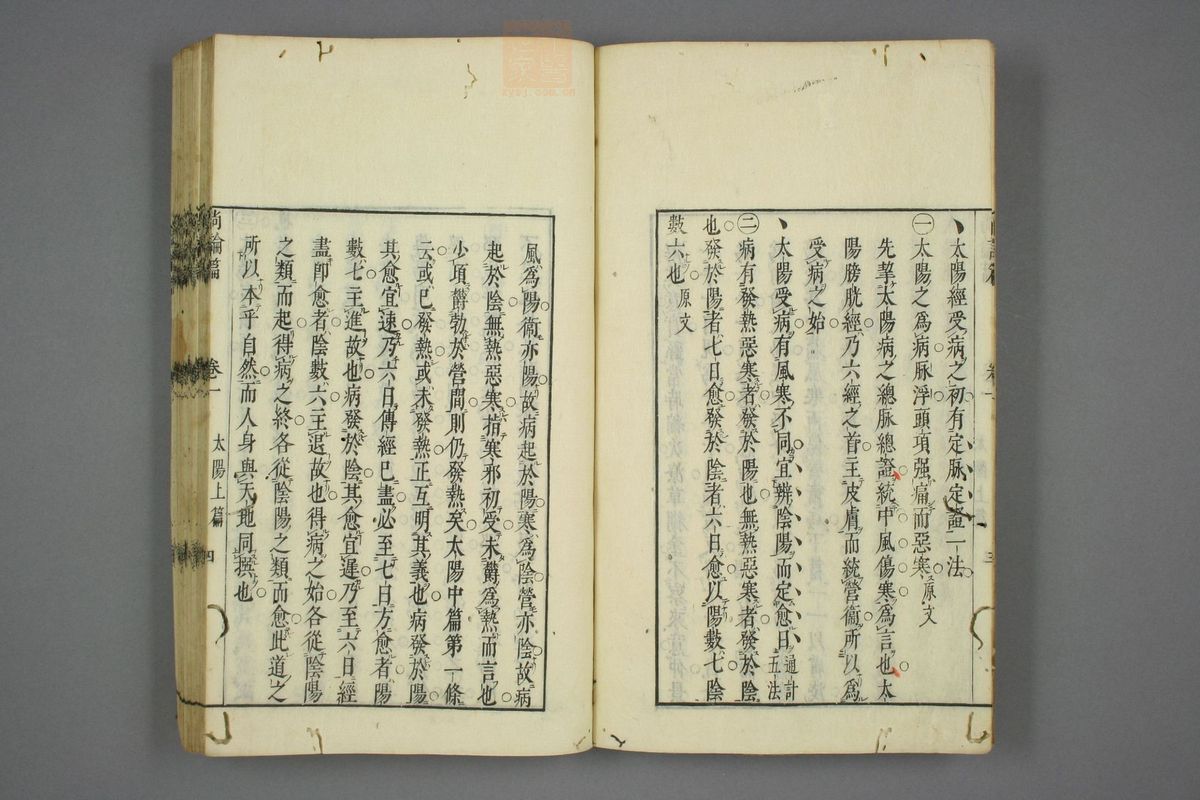 太陽經受病之初有定脉定證一法
㊀太陽之爲病脉浮頭項强痛而惡寒原文
先挈太陽病之總脉總證統中風傷寒爲言也太
陽膀胱經乃六經之首主皮膚而統營衞所以爲
受病之始
太陽受病有風寒不同宜辨陰陽而定愈日通計五法
㊁病有發熱惡寒者發於陽也無熱惡寒者發於陰
也發於陽者七日愈發於陰者六日愈以陽數七陰
數六也原文
卷一
三
風爲陽衞亦陽故病起於陽寒爲陰營亦陰故病
起於陰無熱惡寒指寒邪初受未欝爲熱而言也
少項欝勃於營間則仍發熱矣太陽中篇第一條
云或已發熱或未發熱正互明其義也病發於陽
其愈宜速乃六日傳經已盡必至七日方愈者陽
數七主進故也病發於陰其愈宜遲乃至六日經
盡卽愈者陰數六主退故也得病之始各從陰陽
之類而起得病之終各從陰陽之類而愈此道之
所以本乎自然而人身與天地同撰也
尚論篇
卷一
太陽上篇
四
zysj.com.cn